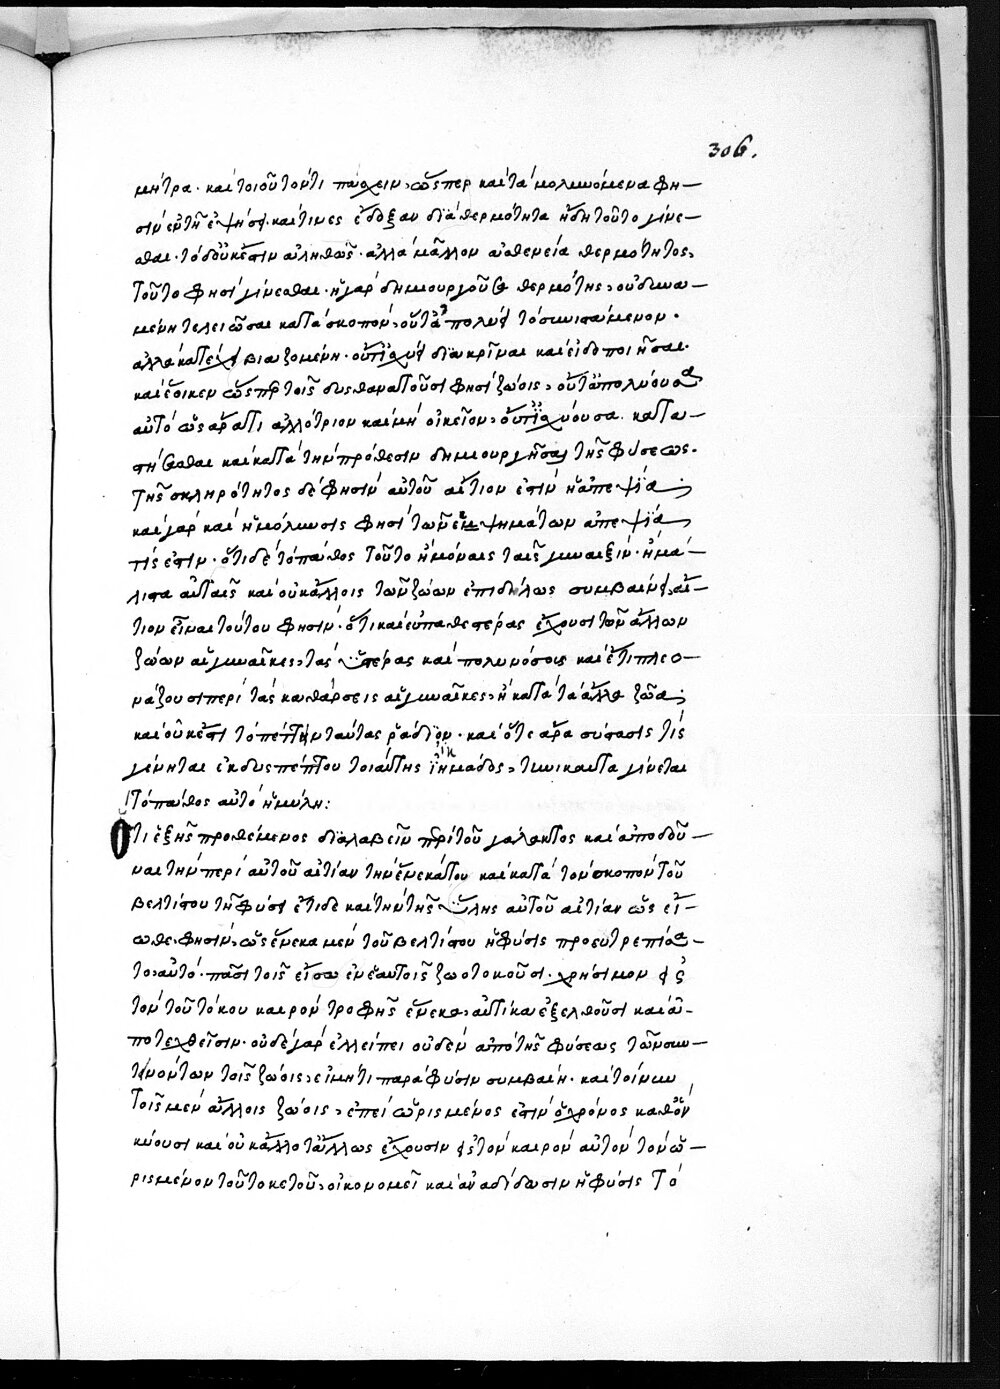 306.
μήτρα· καὶ τοιοῦτόν τι πάσχειν, ὥσπερ καὶ τὰ μολυνόμενα φη-
σὶν ἐν τῇ ἑψήσει· καί τινες ἔδοξαν διὰ θερμότητα ἤδη τοῦτο γίνε-
σθαι· τὸ δ' οὐκ ἔστιν ἀληθῶς· ἀλλὰ μᾶλλον ἀσθενείᾳ θερμότητος,
τοῦτο φησὶ γίνεσθαι· ἡ γὰρ δημιουργοῦσα θερμότης, οὐ δυνα-
μένη τελειῶσαι κατὰ σκοπὸν, οὔτ' ἀπολύει τὸ συνιστάμενον·
ἀλλὰ κατέχει βιαζομένη· οὔτ' ἰσχύει διακρῖναι καὶ εἰδοποιῆσαι·
καὶ ἔοικεν ὥσπερ τοῖς δυσθανατοῦσι φησὶ ζώοις, οὔτ' ἀπολύουσα
αὐτὸ ὡς ἄρα τι ἀλλότριον καὶ μὴ οἰκεῖον, οὔτ' ἰσχύουσα κατα-
στήσασθαι καὶ κατὰ τὴν πρόθεσιν δημιουργῆσαι τῆς φύσεως.
τῆς σκληρότητος δέ φησιν αὐτοῦ αἴτιον ἐστὶν ἡ ἀπεψία,
καὶ γὰρ καὶ ἡ μόλυνσις φησὶ τῶν ἑψημάτων ἀπεψία
τίς ἐστιν· ὅτι δὲ τὸ πάθος τοῦτο ἢ μόναις ταῖς γυναιξὶν· ἢ μά-
λιστα αὐταῖς καὶ οὐκ ἄλλοις τῶν ζώων ἐπιδήλως συμβαίνει, αἴ-
τιον εἶναι τούτου φησὶν· ὅτι καὶ εὐπαθεστέρας ἔχουσι τῶν ἄλλων
ζώων αἱ γυναῖκες, τὰς ὑστέρας καὶ πολυνόσοις καὶ ἔτι πλεο-
νάζουσι περὶ τὰς καθάρσεις αἱ γυναῖκες, ἢ κατὰ τὰ ἄλλα ζῶα,
καὶ οὐκ ἔστι τὸ πέττειν ταύτας ῥᾴδιον· καὶ ὅτε ἄρα σύστασίς τις
γένηται ἐκ δυσπέπτου τοιαύτης ἰκμάδος, τηνικαῦτα γίνεται
τὸ πάθος αὐτὸ ἡ μύλη:
Ὅτι ἑξῆς προθέμενος διαλαβεῖν περὶ τοῦ γάλακτος καὶ ἀποδοῦ-
ναι τὴν περὶ αὐτοῦ αἰτίαν τὴν ἕνεκά του καὶ κατὰ τὸν σκοπὸν τοῦ
βελτίστου τῇ φύσει ἔτι δὲ καὶ τὴν τῆς ὕλης αὐτοῦ αἰτίαν ὡς εἴ-
ωθε· φησὶν, ὡς ἕνεκα μὲν τοῦ βελτίστου ἡ φύσις προευτρεπίσα-
το αὐτὸ· πᾶσι τοῖς εἴσω ἐν ἑαυτοῖς ζωοτοκοῦσι· χρήσιμον εἰς
τὸν τοῦ τόκου καιρὸν τροφῆς ἕνεκα, αὐτίκα ἐξελθοῦσι καὶ ἀ-
ποτεχθεῖσιν· οὐδὲ γὰρ ἐλλείπει οὐδὲν ἀπὸ τῆς φύσεως τῶν συν-
τεινόντων τοῖς ζώοις, εἰ μή τι παρὰ φύσιν συμβαίη· καὶ τοίνυν
τοῖς μὲν ἄλλοις ζώοις, ἐπεὶ ὡρισμένος ἐστὶν ὁ χρόνος καθ' ὃν
κύουσι καὶ οὐκ ἄλλοτ' ἄλλως ἔχουσιν εἰς τὸν καιρὸν αὐτὸν τὸν ὡ-
ρισμένον τοῦ τοκετοῦ, οἰκονομεῖ καὶ ἀναδίδωσιν ἡ φύσις τὸ